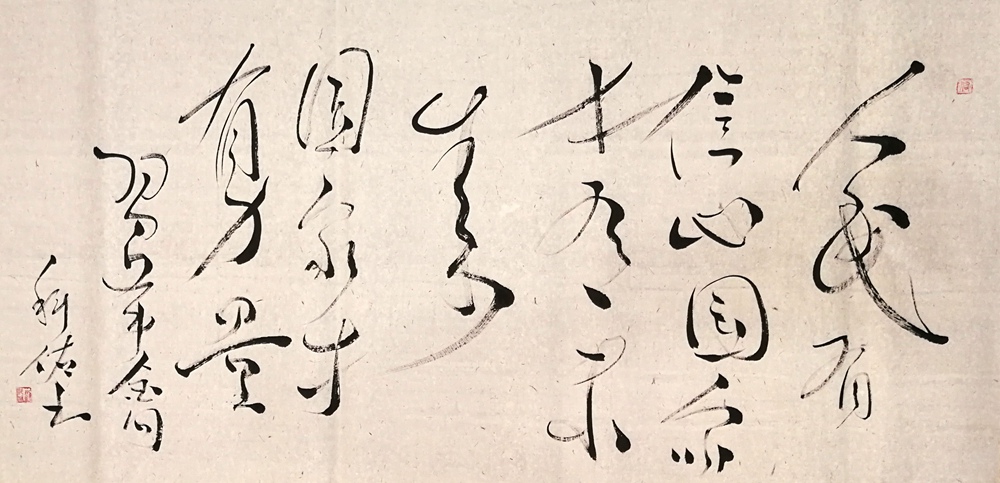 人民有
信心国家
才有未
来
国家才
有力量
習近平金句
科佑